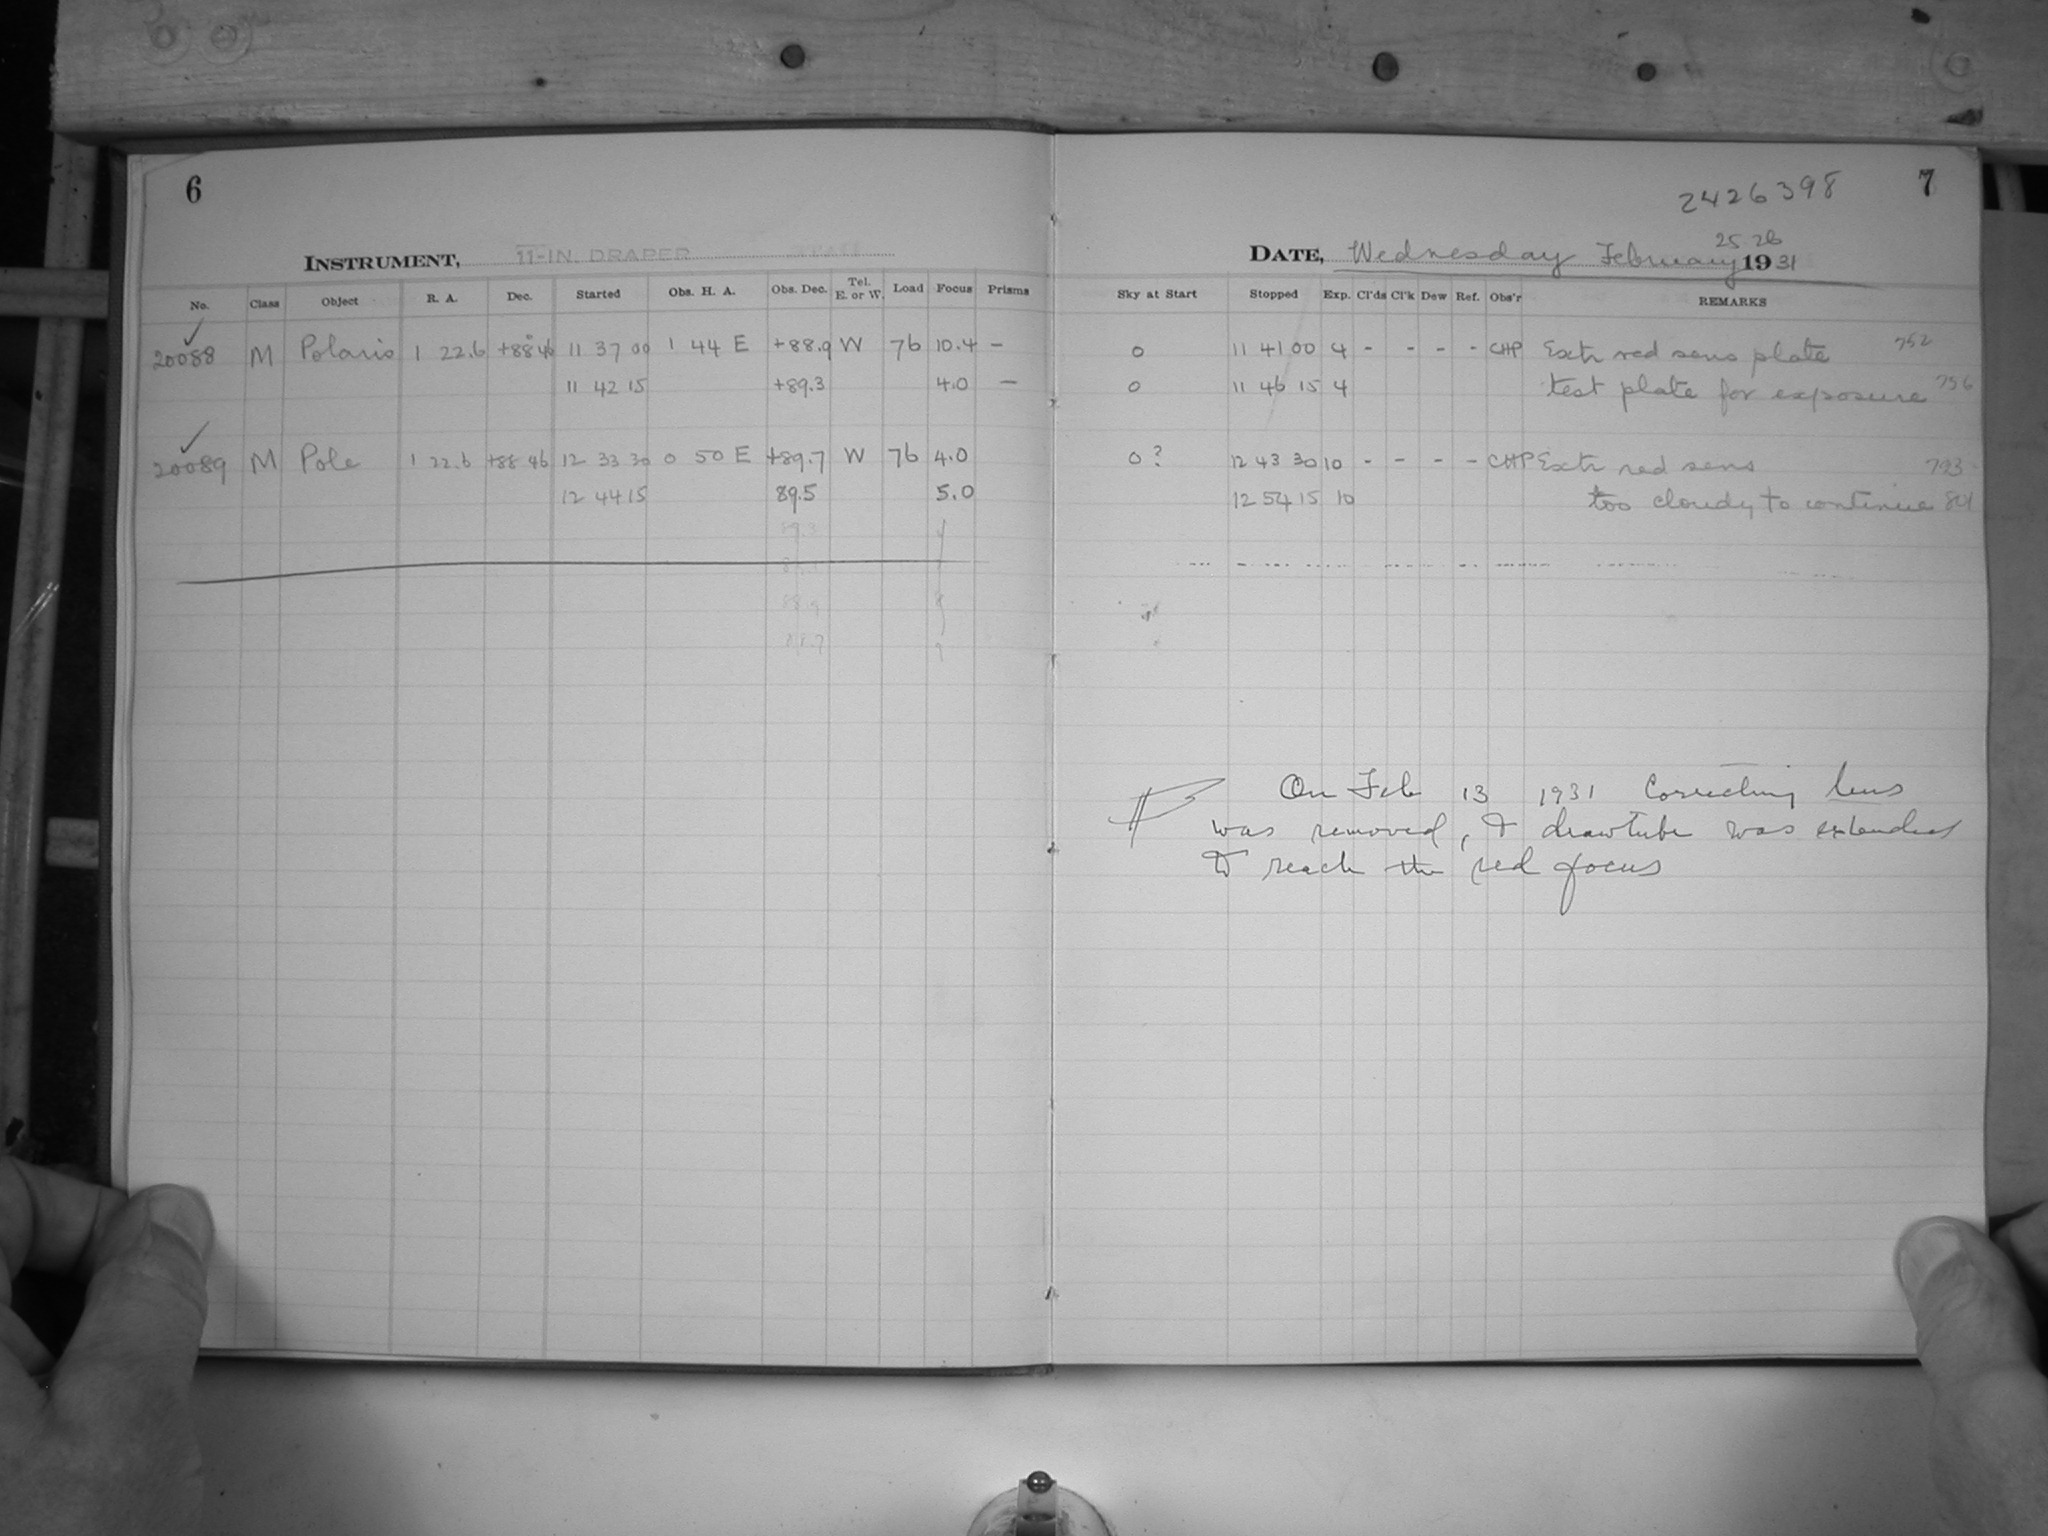 6
INSTRUMENT, 11-IN. DRAPER
No. Class Object R. A. Dec. Started Obs. H. A. Obs. Dec. Tel. E. or W. Load Focus Prisms
20088 M Polaris 1 22.6 +88 46 11 37 00 1 44 E +88.9 W 76 10.4 -
11 42 15 +89.3 4.0 -
20089 M Pole 1 22.6 +88 46 12 33 30 0 50 E +89.7 W 76 4.0
12 44 15 89.5 5.0
89.3
88.9
88.7
7
2426398
DATE, Wednesday February 25-26 1931
Sky at Start Stopped Exp. Cl'ds Cl'k Dew Ref. Obs'r REMARKS
0 11 41 00 4 - - - - CHP Extr red sens plate 752
0 11 46 15 4 test plate for exposure 756
0? 12 43 30 10 - - - - CHP Extr red sens 793
12 54 15 10 too cloudy to continue 801
On Feb 13 1931 Correcting lens
was removed, & drawtube was extended
to reach the red focus